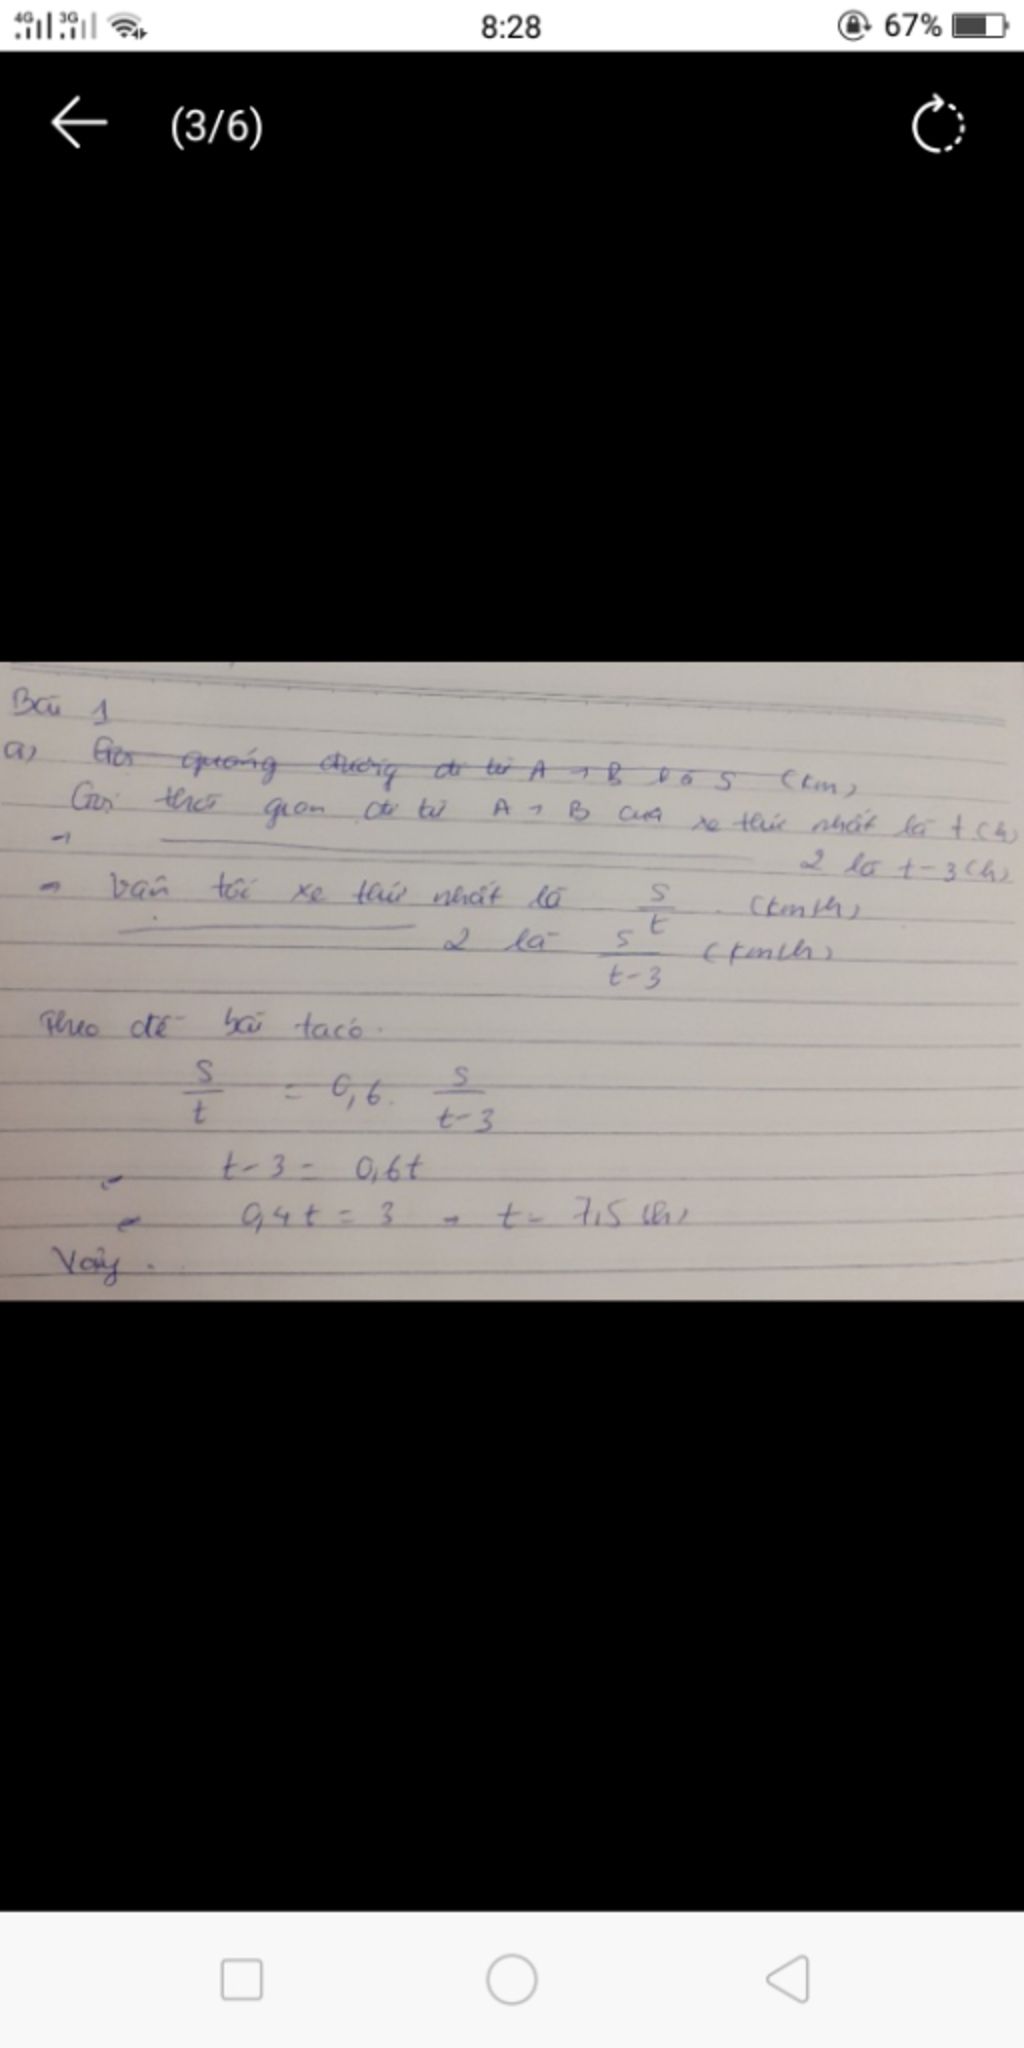 4G 3G 8:28 67%
(3/6)
Bài 1
a) Gọi quãng đường đi từ A → B là S (km)
Gọi thời gian đi từ A → B của xe thứ nhất là t (h)
→ 2 là t - 3 (h)
→ Vận tốc xe thứ nhất là S/t (km/h)
2 là S/(t-3) (km/h)
Theo đề bài ta có.
S/t = 0,6. S/(t-3)
t - 3 = 0,6t
0,4t = 3 → t = 7,5 (h)
Vậy.